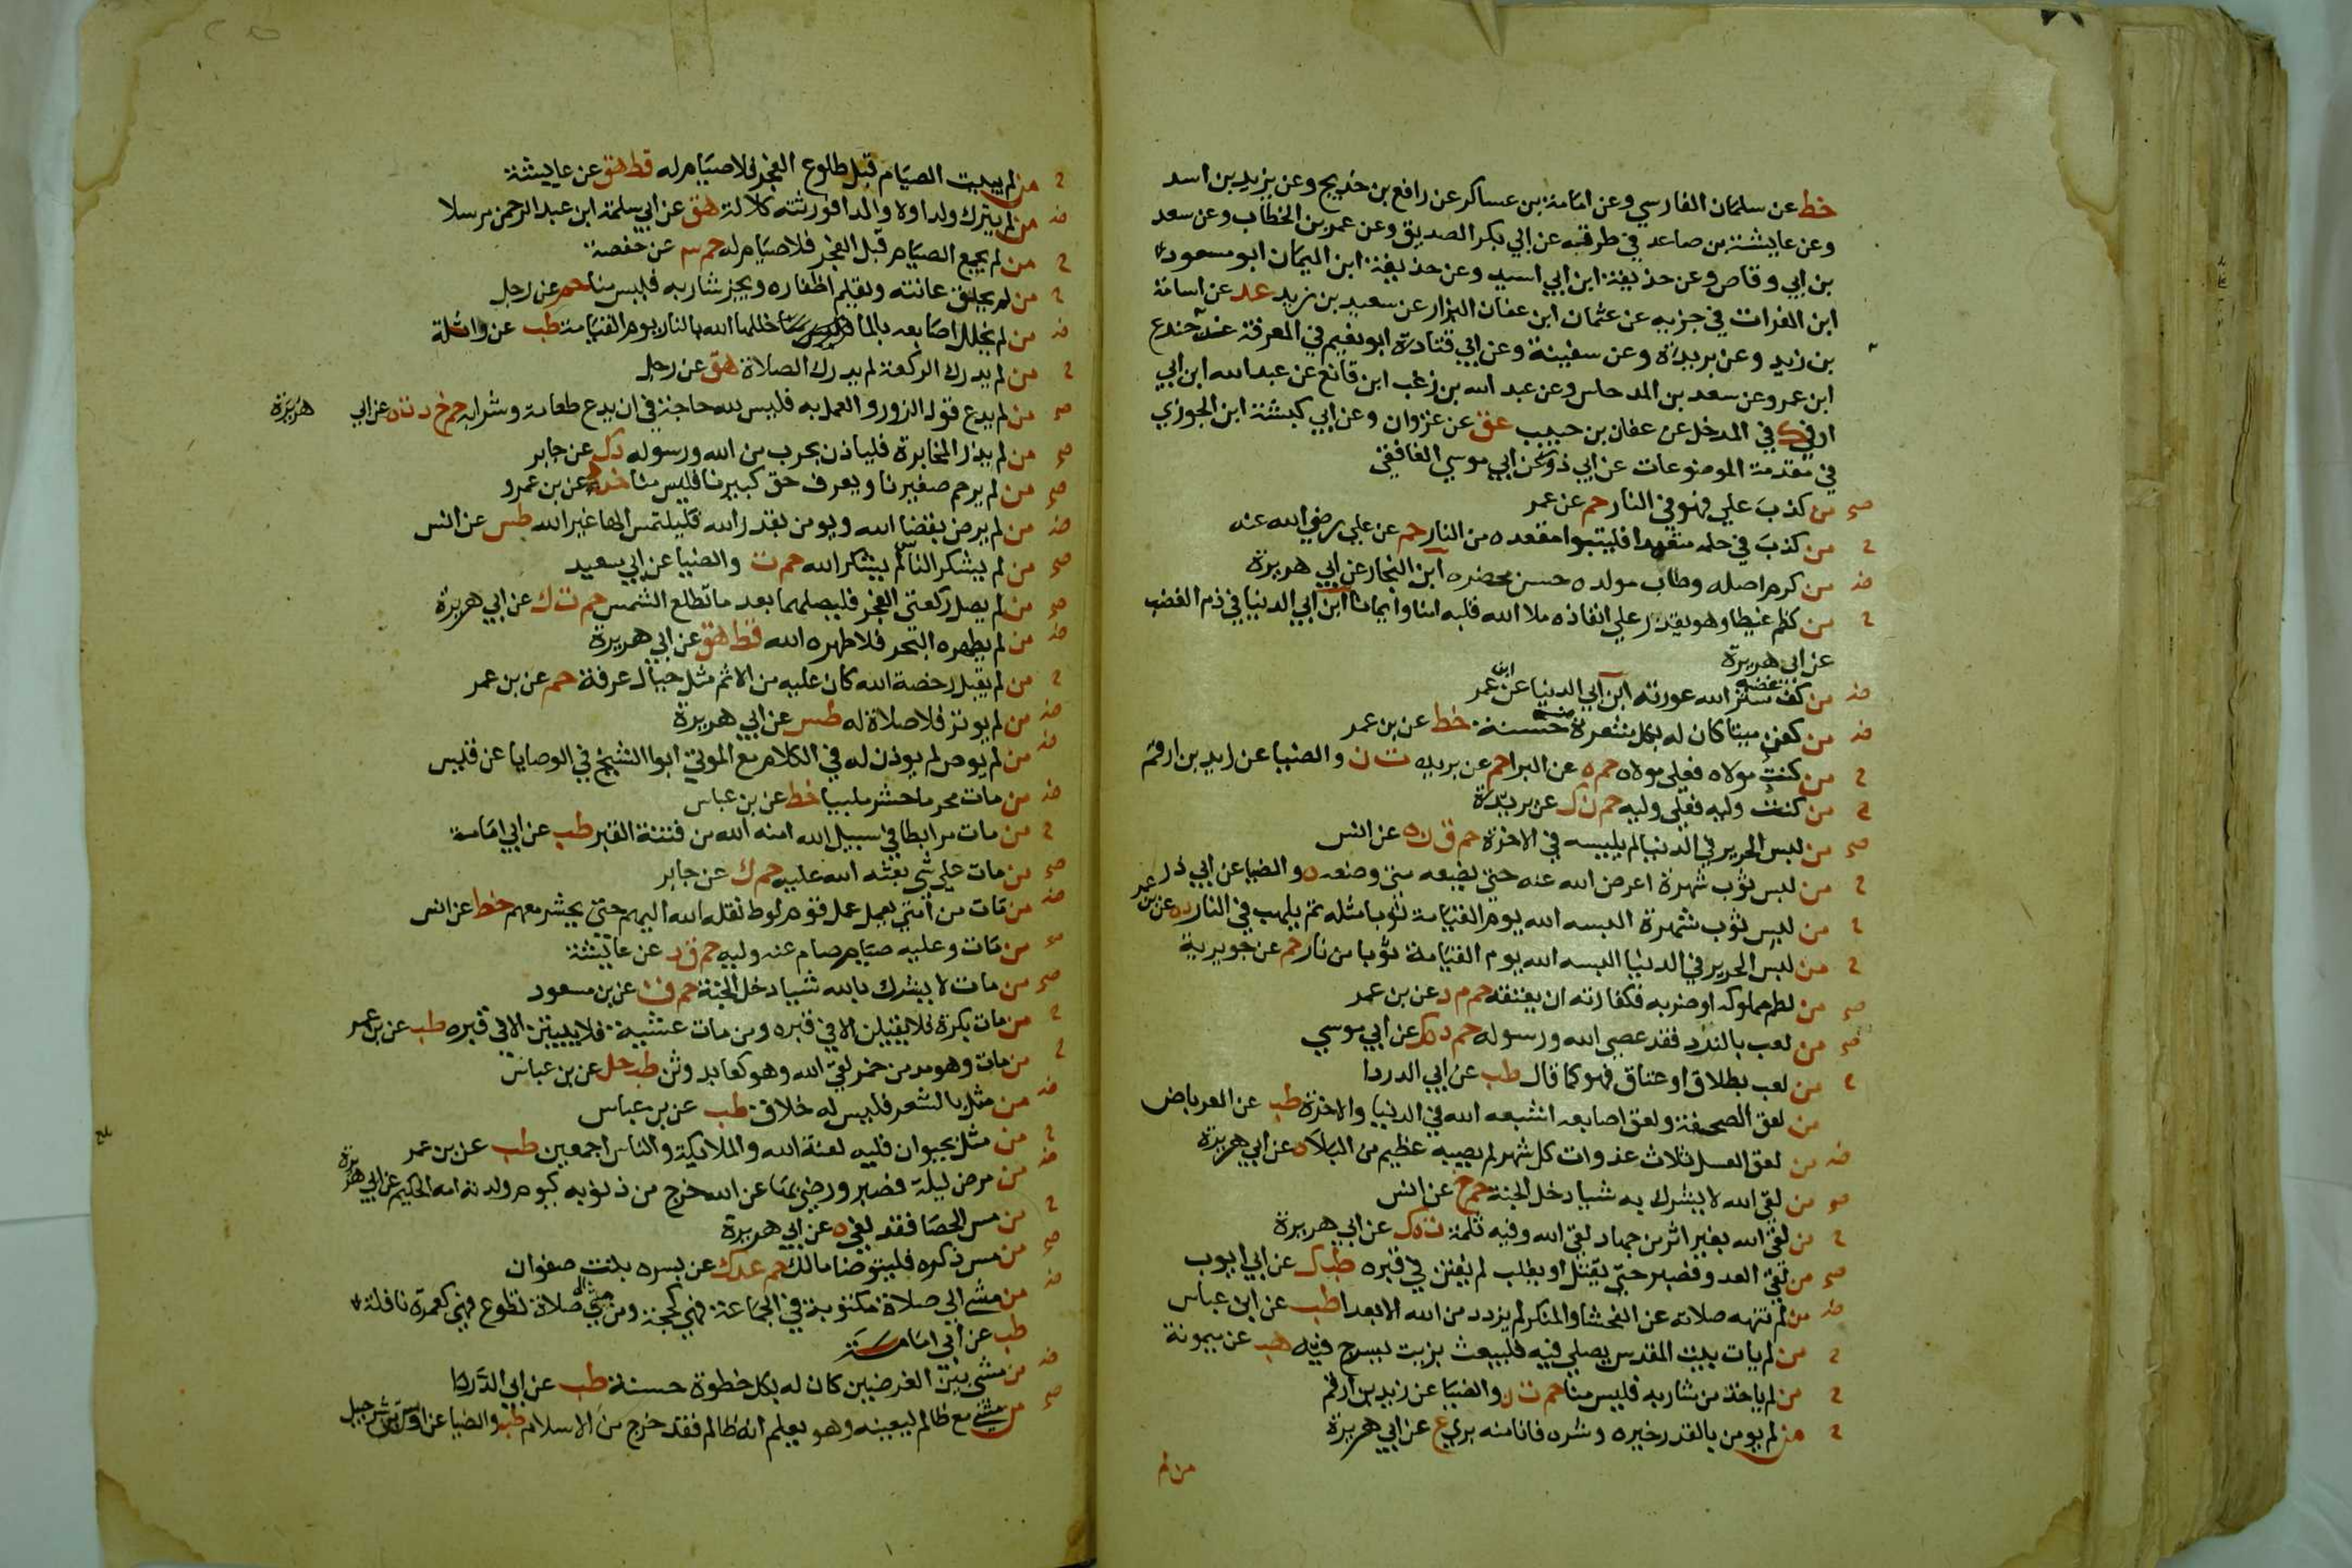 خط عن سلمان الفارسي وعن امامة بن عساكر عن رافع بن خديج وعن يزيد بن اسد
وعن عايشة بن صاعد في طرقه عن ابي بكر الصديق وعن عمر بن الخطاب وعن سعد
بن ابي وقاص وعن حذيفة ابن ابي اسيد وعن حذيفة ابن اليمان ابو مسعود
ابن الفرات في جزيه عن عثمان ابن عفان البزار عن سعيد بن زيد عد عن اسامة
بن زيد وعن بريدة وعن سفينة وعن ابي قتادة ابو نعيم في المعرفة عن جندع
ابن عمرو وعن سعد بن المدحاس وعن عبد الله بن زغب ابن قانع عن عبد الله ابن ابي
اوفي ك في المدخل عن عفان بن حبيب عق عن غزوان وعن ابي كبشة ابن الجوزي
في مقدمة الموضوعات عن ابي ذر وعن ابي موسي الغافقي
صح من كذب علي فهو في النار حم عن عمر
ح من كذب في حلمه متعمدا فليتبوا مقعده من النار حم عن علي رضي الله عنه
ض من كرم اصله وطاب مولده حسن محضره ابن النجار عن ابي هريرة
ح من كظم غيظا وهو يقدر علي انفاذه ملا الله قلبه امنا وايمانا ابن ابي الدنيا في ذم الغضب
عن ابي هريرة
ض من كف غضبه ستر الله عورته ابن ابي الدنيا عن ابن عمر
ض من كفن ميتا كان له بكل شعرة منه حسنة خط عن بن عمر
ح من كنت مولاه فعلي مولاه حم ه عن البرا حم عن بريدة ت ن والضيا عن زيد بن ارقم
ح من كنت وليه فعلي وليه حم ن ك عن بريدة
صح من لبس الحرير في الدنيا لم يلبسه في الاخرة حم ق ن ه عن انس
ح من لبس ثوب شهرة اعرض الله عنه حتي يضعه متي وضعه ه والضيا عن ابي ذر
ح من لبس ثوب شهرة البسه الله يوم القيامة ثوبا مثله ثم يلهب في النار د ه عن بن عمر
ح من لبس الحرير في الدنيا البسه الله يوم القيامة ثوبا من نار حم عن جويرية
صح من لطم مملوكه او ضربه فكفارته ان يعتقه حم م د عن بن عمر
صح من لعب بالنرد فقد عصي الله ورسوله حم د ه ك عن ابي موسي
ح من لعب بطلاق او عتاق فهو كما قال طب عن ابي الدردا
من لعق الصحفة ولعق اصابعه اشبعه الله في الدنيا والاخرة طب عن العرباض
ض من لعق العسل ثلاث غدوات كل شهر لم يصيبه عظيم من البلا ه عن ابي هريرة
صح من لقي الله لا يشرك به شيا دخل الجنة حم خ عن انس
ح من لقي الله بغير اثر من جهاد لقي الله وفيه ثلمة ت ه ك عن ابي هريرة
صح من لقي العدو فصبر حتي يقتل او يغلب لم يفتن في قبره طب ك عن ابي ايوب
ض من لم تنهه صلاته عن الفحشا والمنكر لم يزدد من الله الا بعدا طب عن ابن عباس
ح من لم يات بيت المقدس يصلي فيه فليبعث بزيت يسرج فيه هب عن ميمونة
ح من لم ياخذ من شاربه فليس منا حم ت ن والضيا عن زيد بن ارقم
ح من لم يومن بالقدر خيره وشره فانا منه بري ع عن ابي هريرة
من لم
ح من لم يبيت الصيام قبل طلوع الفجر فلا صيام له قط هق عن عايشة
ض من لم يترك ولدا ولا والدا فورثته كلالة هق عن ابي سلمة ابن عبد الرحمن مرسلا
ح من لم يجمع الصيام قبل الفجر فلا صيام له حم عن حفصة
ح من لم يحلق عانته ويقلم اظفاره ويجز شاربه فليس منا حم عن رجل
ض من لم يخلل اصابعه بالما خللها الله بالنار يوم القيامة طب عن واثلة
ح من لم يدرك الركعة لم يدرك الصلاة هق عن رجل
صح من لم يدع قول الزور والعمل به فليس لله حاجة في ان يدع طعامه وشرابه حم خ د ت ه عن ابي هريرة
صح من لم يذر المخابرة فلياذن بحرب من الله ورسوله د ك عن جابر
صح من لم يرحم صغيرنا ويعرف حق كبيرنا فليس منا خد د عن بن عمرو
ض من لم يرض بقضا الله ويومن بقدر الله فليلتمس الها غير الله طس عن انس
صح من لم يشكر الناس لم يشكر الله حم ت والضيا عن ابي سعيد
صح من لم يصل ركعتي الفجر فليصلهما بعد ما تطلع الشمس حم ت ك عن ابي هريرة
ض من لم يطهره البحر فلا طهره الله قط هق عن ابي هريرة
ح من لم يقبل رخصة الله كان عليه من الاثم مثل جبال عرفة حم عن بن عمر
ض من لم يوتر فلا صلاة له طس عن ابي هريرة
ض من لم يوص لم يوذن له في الكلام مع الموتي ابوا الشيخ في الوصايا عن قيس
ض من مات محرما حشر ملبيا خط عن بن عباس
ح من مات مرابطا في سبيل الله امنه الله من فتنة القبر طب عن ابي امامة
صح من مات علي شي بعثه الله عليه حم ك عن جابر
ض من مات من امتي يعمل عمل قوم لوط نقله الله اليهم حتي يحشر معهم خط عن انس
صح من مات وعليه صيام صام عنه وليه حم ق د عن عايشة
صح من مات لا يشرك بالله شيا دخل الجنة حم ق عن بن مسعود
ح من مات بكرة فلا يقيلن الا في قبره ومن مات عشية فلا يبيتن الا في قبره طب عن بن عمر
ح من مات وهو مدمن خمر لقي الله وهو كعابد وثن طب حل عن بن عباس
ض من مثل بالشعر فليس له خلاق طب عن بن عباس
ح من مثل بحيوان فعليه لعنة الله والملايكة والناس اجمعين طب عن بن عمر
ض من مرض ليلة فصبر ورضي بها عن الله خرج من ذنوبه كيوم ولدته امه الحكيم عن ابي هريرة
ح من مس الحصا فقد لغي ه عن ابي هريرة
صح من مس ذكره فليتوضا مالك حم عد ك عن بسره بنت صفوان
ض من مشي الي صلاة مكتوبة في الجماعة فهي كحجة ومن مشي الي صلاة تطوع فهي كعمرة نافلة
طب عن ابي امامة
ض من مشي بين الغرضين كان له بكل خطوة حسنة طب عن ابي الدردا
صح من مشي مع ظالم ليعينه وهو يعلم انه ظالم فقد خرج من الاسلام طب والضيا عن اوس بن شرحبيل